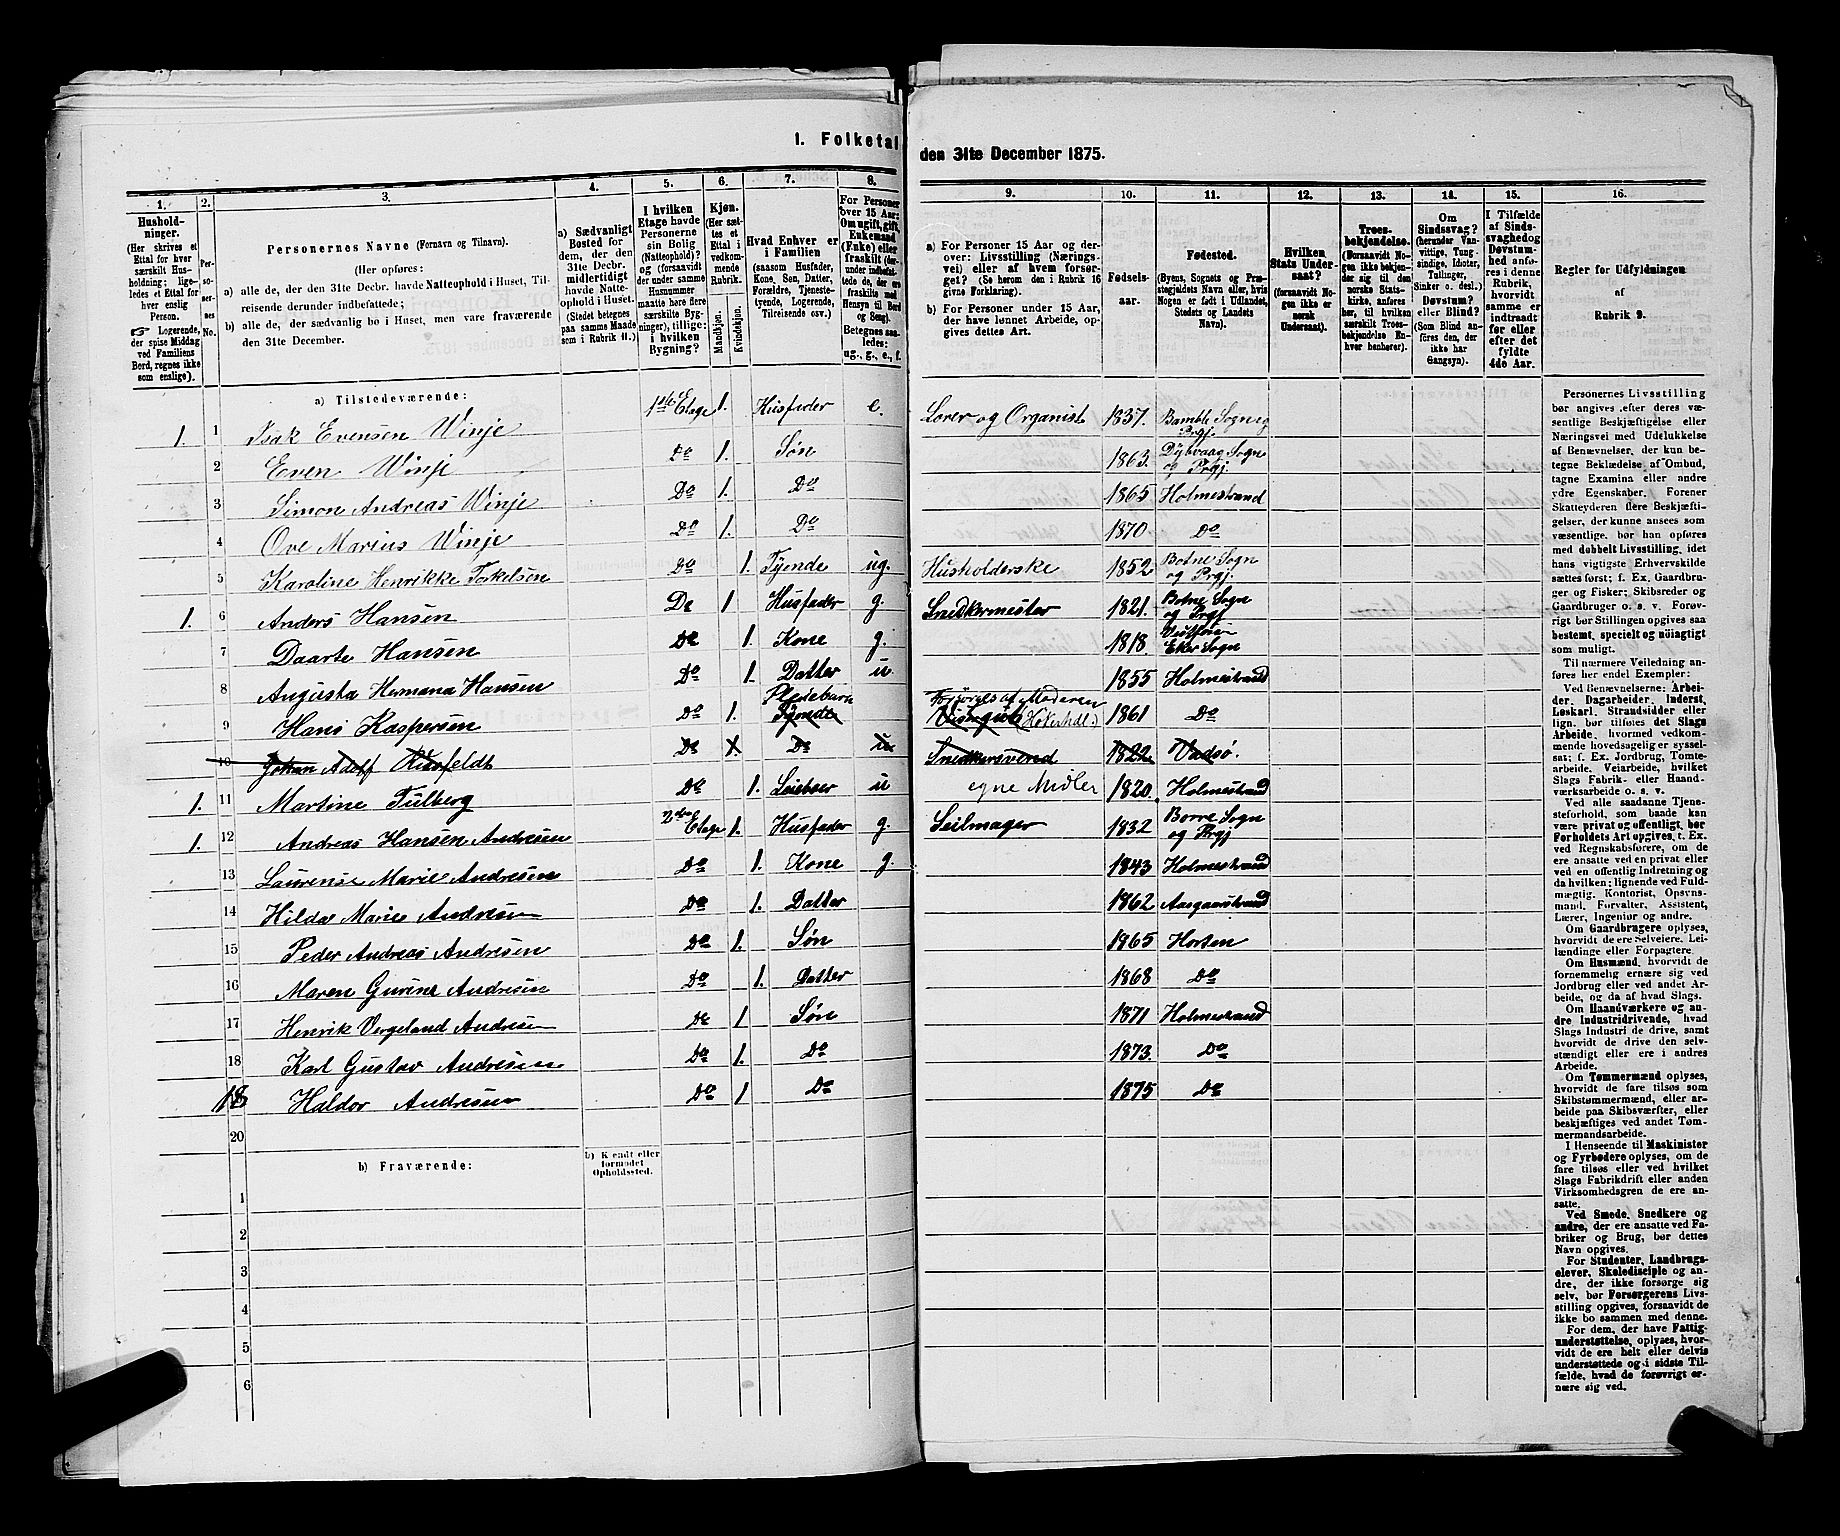 1. Folketal
den 31te December 1875.
1. 2. 3. 4. 5. 6. 7. 8. 9. 10. 11. 12. 13. 14. 15. 16.
Husholdninger.
(Her skrives et
Ettal for hver
særskilt Husholdning;
ligeledes et Ettal for
hver enslig
Person.
☞ Logerende,
der spise Middag
ved Familiens
Bord, regnes ikke
som enslige).
Personernes No.
Personernes Navne (Fornavn og Tilnavn).
(Her opføres:
a) alle de, der den 31te Decbr. havde Natteophold i Huset, Tilreisende derunder indbefattede;
b) alle de, der sædvanlig bo i Huset, men vare fraværende
den 31te December.
a) Sædvanligt
Bosted for
dem, der den
31te Decbr.
midlertidigt
havde Natteophold i Huset.
(Stedet betegnes
paa samme Maade
som i Rubrik 11.)
I hvilken
Etage havde
Personerne
sin Bolig
(Natteophold)?
og (forsaavidt
der under samme
Husnummer
maatte høre flere
særskilte Bygninger), tillige:
i hvilken
Bygning?
Kjøn.
(Her sættes et
Ettal i
vedkommende
Rubrik.)
Mandkjøn. Kvindekjøn.
Hvad Enhver er
i Familien
(saasom Husfader,
Kone, Søn, Datter,
Forældre, Tjenestetyende, Logerende,
Tilreisende osv.)
For Personer
over 15 Aar:
Om ugift, gift,
Enkemand
(Enke) eller
fraskilt (derunder indbefattede, de ere
fraskilte med
Hensyn til Bord
og Seng).
Betegnes saaledes:
ug., g., e., f.
a) For Personer 15 Aar og derover: Livsstilling (Næringsvei) eller af hvem forsørget? (Se herom den i Rubrik 16
givne Forklaring).
b) For Personer under 15 Aar,
der have lønnet Arbeide, opgives dettes Art.
Fødselsaar.
Fødested.
(Byens, Sognets og Præstegjeldets Navn eller, hvis
Nogen er født i Udlandet,
Stedets og Landets
Navn).
Hvilken
Stats Undersaat?
(forsaavidt Nogen ikke er
norsk
Undersaat).
Troesbekjendelse.
(Forsaavidt Nogen ikke bekjender sig til den
norske Statskirke, anføres
her, til hvilken
særskilt Troesbekjendelse Enhver henhører).
Om
Sindssvag?
(herunder Vanvittige, Tungsindige, Idioter,
Tullinger,
Sinker o. desl.)
Døvstum?
eller Blind?
(Som Blind anføres den, der
ikke har
Gangsyn).
I Tilfælde
af Sindssvaghed og
Døvstumhed anføres i denne
Rubrik,
hvorvidt
samme er
indtraadt
før eller
efter det
fyldte
4de Aar.
Regler for Udfyldningen
af
Rubrik 9.
a) Tilstedeværende:
1. 1 Isak Evensen Winje 1ste Etage 1. Husfader e. Lærer og Organist 1837. Bamble Sogn og Prgj.
2 Even Winje Do 1. Søn 1863. Dybvaag Sogn og Prgj.
3 Simon Andreas Winje Do 1. Do 1865 Holmestrand
4 Ove Marius Winje Do 1. Do 1870. Do
5 Karoline Henrikke Torkelsen Do 1. Tyende ug. Husholderske 1852. Botne Sogn og Prgj.
1. 6 Anders Hansen Do 1 Husfader g. Snedkermester 1821. Botne Sogn og Prgj
7 Daarte Hansen Do 1. Kone g. 1818. Eker Sogn
8 Augusta Hermana Hansen Do 1. Datter u. 1855 Holmestrand
9 Hans Kaspersen Do 1. Pleiebarn Tyende Forsørges af Moderen (Høkerhdl.) 1861 Do
10 Johan Adolf Do 1. Do u Snedkersvend 1822. Vadsø.
1. 11 Martine Tulberg Do 1. Leieboer u egne Midler 1820. Holmestrand
1. 12 Andreas Hansen Andresen 2den Etage 1. Husfader g. Seilmager 1832 Borre Sogn og Prgj
13 Laurense Marie Andresen Do 1. Kone g. 1843 Holmestrand
14 Hilda Marie Andresen Do 1. Datter 1862 Aasgaardstrand
15 Peder Andreas Andresen Do 1. Søn 1865 Horten
16 Maren Gurine Andresen Do 1. Datter 1868 Do
17 Henrik Vergeland Andresen Do 1 Søn 1871 Holmestrand
18 Karl Gustav Andresen Do 1. Do 1873. Do
18 Haldor Andresen Do 1 Do 1875 Do
20
b) Fraværende:
b) Kjendt eller
formodet
Opholdssted.
1
2
3
4
5
6
Personernes Livsstilling
bør angives efter deres væsentlige Beskjæftigelse eller
Næringsvei med Udelukkelse
af Benævnelser, der kun betegne Beklædelse af Ombud,
tagne Examina eller andre
ydre Egenskaber. Forener
Skatteyderen flere Beskjæftigelser, der kunne ansees som
væsentlige, bør han opføres
med dobbelt Livsstilling, idet
hans vigtigste Erhvervskilde
sættes først; f. Ex. Gaardbruger og Fisker; Skibsreder og
Gaardbruger o. s. v. Forøvrigt bør Stillingen opgives saa
bestemt, specielt og nöiagtigt
som muligt.
Til nærmere Veiledning anføres her endel Exempler:
Ved Benævnelserne: Arbeider, Dagarbeider, Inderst,
Løskarl, Strandsidder eller
lign. bør tilføies det Slags
Arbeide, hvormed vedkommende hovedsagelig er sysselsat; f. Ex. Jordbrug, Tomtearbeide, Veiarbeide, hvilket
Slags Fabrik- eller Haandværksarbeide o. s. v.
Ved alle saadanne Tjenesteforhold, som baade kan
være privat og offentligt, bør
Forholdets Art opgives, t. Ex.
ved Regnskabsførere, om de
ere ansatte ved en privat eller
ved en offentlig Indretning og
da hvilken; lignende ved Fuldmægtig, Kontorist, Opsynsmand, Forvalter, Assistent,
Lærer, Ingeniør og andre.
Om Gaardbrugere oplyses,
hvorvidt de ere Selveiere, Leilændinge eller Forpagtere.
Om Husmænd, hvorvidt de
fornemmelig ernære sig ved
Jordbrug eller ved andet Arbeide, og da af hvad Slags.
Om Haandværkere og andre Industridrivende, hvad
Slags Industri de drive, samt
hvorvidt de drive den selvstændigt eller ere i andres
Arbeide.
Om Tømmermænd oplyses,
hvorvidt de fare tilsøs som
Skibstømmermænd, eller arbeide paa Skibsværfter, eller
beskjæftiges ved andet Tømmermandsarbeide.
I Henseende til Maskinister
og Fyrbødere oplyses, om de
fare tilsøs eller ved hvilket
Slags Fabrikdrift eller anden
Virksomhedsgren de ere ansatte.
Ved Smede, Snedkere og
andre, der ere ansatte ved Fabriker og Brug, bør dettes
Navn opgives.
For Studenter, Landbrugselever, Skoledisciple og andre, der ikke forsørge sig
selv, bør Forsørgerens Livsstilling opgives, forsaavidt de
ikke bo sammen med denne.
For dem, der have Fattigunderstøttelse, oplyses, hvorvidt de ere helt eller delvis
understøttede og i sidste Tilfælde, hvad de forøvrigt ernære sig ved.